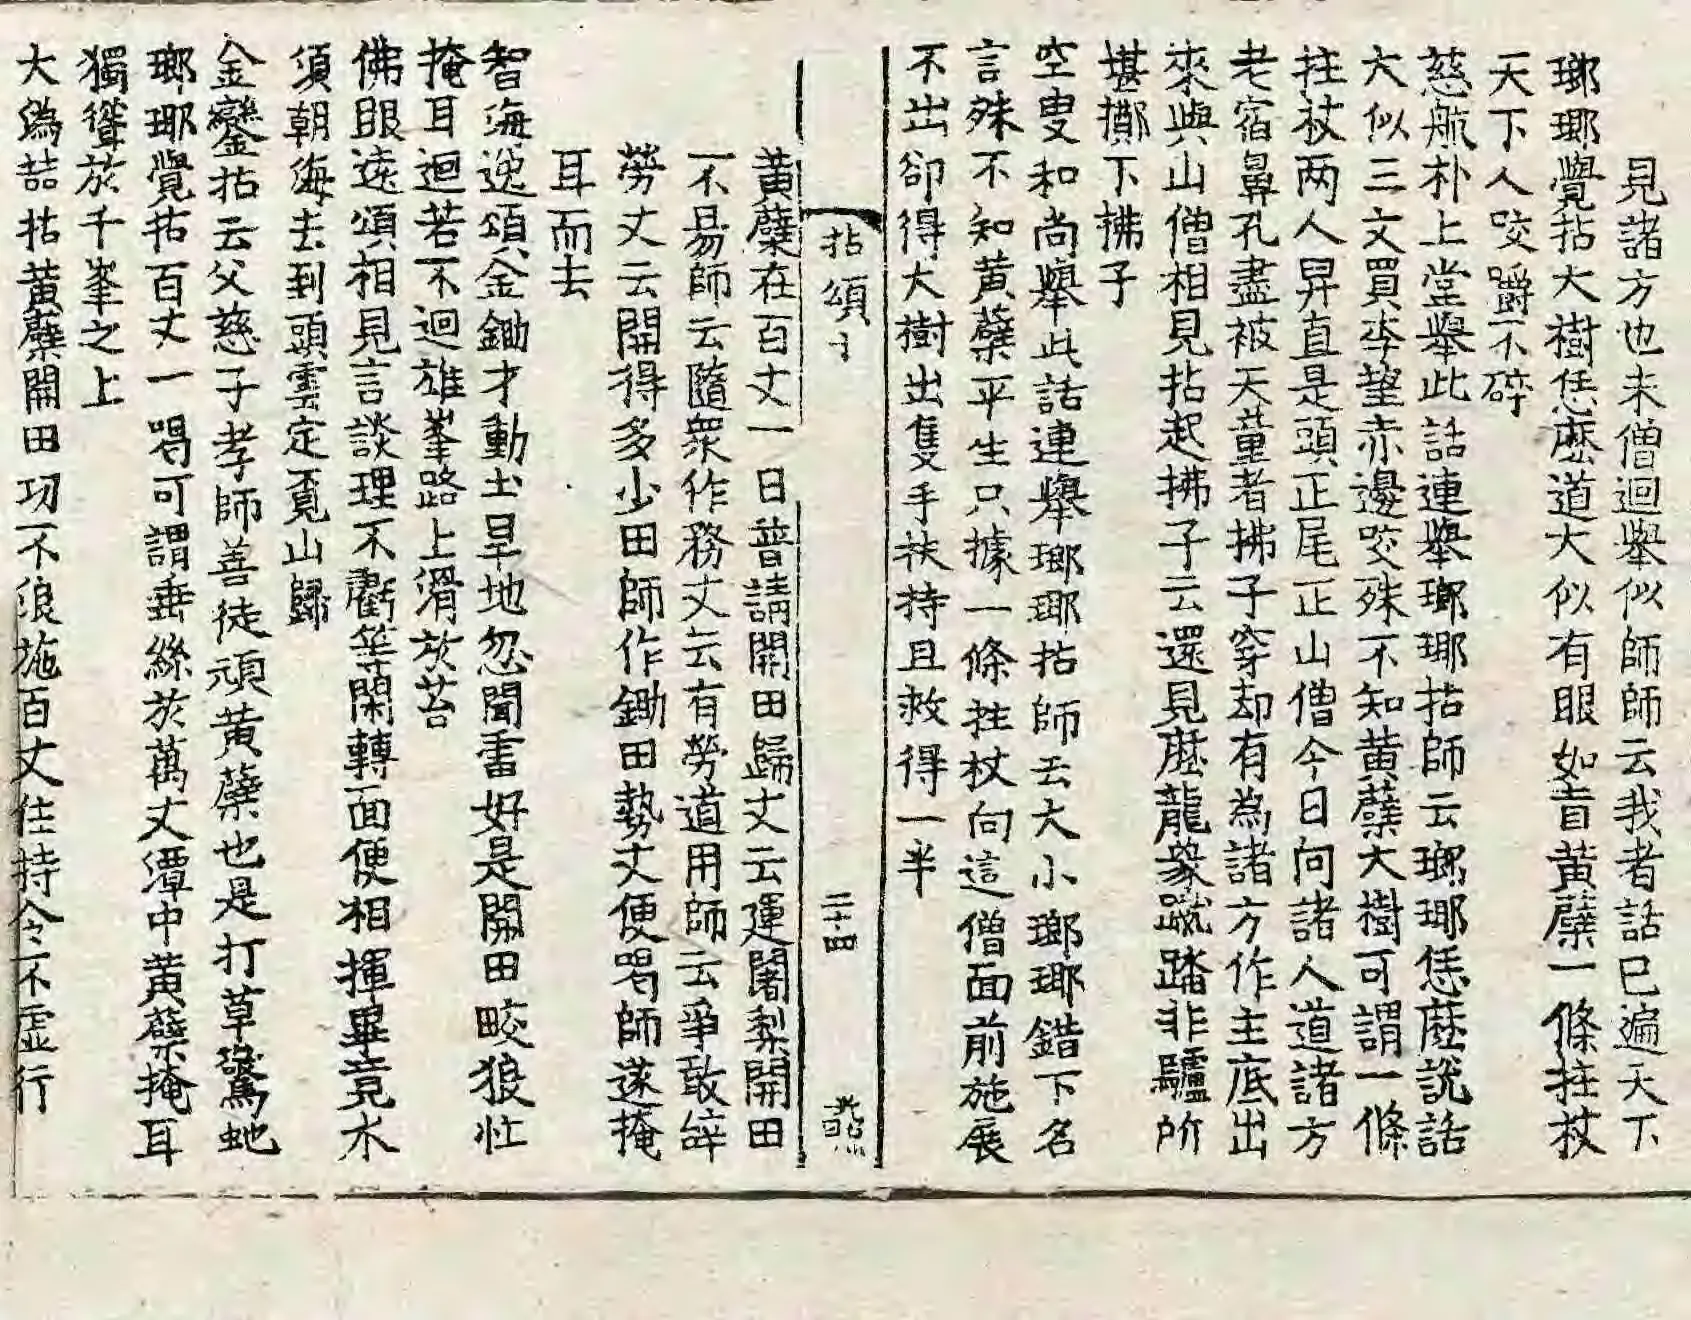 見諸方也未僧迴舉似師師云我者話已遍天下
瑯瑘覺拈大樹恁麽道大似有眼如盲黃蘗一條拄杖
天下人咬嚼不碎
慈航朴上堂舉此話連舉瑯瑘拈師云瑯瑘恁麽說話
大似三文買𡗝望赤邊咬殊不知黃蘗大樹可謂一條
拄杖两人舁直是頭正尾正山僧今日向諸人道諸方
老宿鼻孔盡被天童者拂子穿却有為諸方作主底出
來與山僧相見拈起拂子云還見麽龍象蹴踏非驢所
堪擲下拂子
空叟和尚舉此話連舉瑯瑘拈師云大小瑯瑘錯下名
言殊不知黃蘗平生只據一條拄杖向這僧面前施展
不出卻得大樹出隻手扶持且救得一半
拈頌
二十四
黃蘗在百丈一日普請開田歸丈云運闍梨開田
不易師云隨眾作務丈云有勞道用師云爭敢辭
勞丈云開得多少田師作鋤田勢丈便喝師遂掩
耳而去
智海逸頌金鋤才動土旱地忽聞雷好是開田畯狼忙
掩耳迴若不迴雄峯路上滑於苔
佛眼遠頌相見言談理不虧等閑轉面便相揮畢竟水
須朝海去到頭雲定覓山歸
金鑾拈云父慈子孝師善徒頑黃蘗也是打草驚虵
瑯瑘覺拈百丈一喝可謂垂絲於萬丈潭中黃蘗掩耳
獨聳於千峯之上
大溈喆拈黃蘗開田功不浪施百丈住持令不虛行